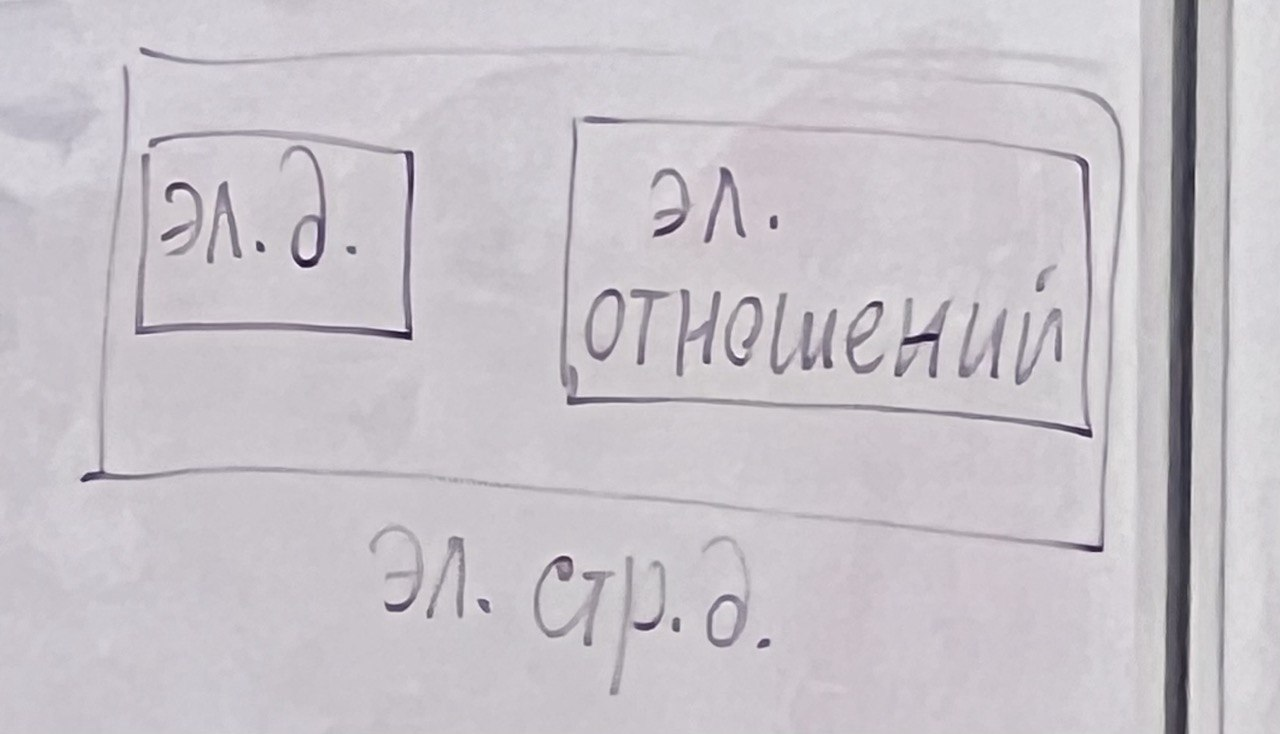 эл. д.
эл.
отношений
эл. стр. д.